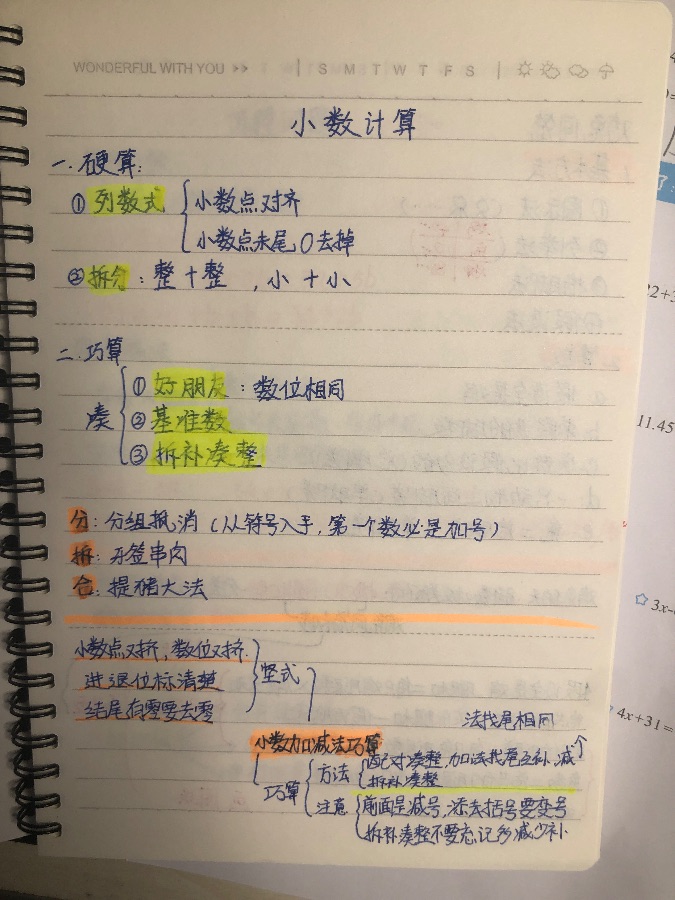 WONDERFUL WITH YOU >> | S M T W T F S |
小数计算
一.硬算:
① 列数式 { 小数点对齐
小数点末尾,0去掉
② 拆分:整+整,小+小
二.巧算
凑 { ① 好朋友:数位相同
② 基准数
③ 拆补凑整
分:分组抵消(从符号入手,第一个数必是加号)
拆:牙签串肉
合:提猪大法
小数点对齐,数位对挤.
进退位标清楚 } 竖式
结尾有零要去零
法找尾相同
小数加减法巧算
巧算 { 方法 { 配对凑整,加法找尾互补,减
拆补凑整
注意 { 前面是减号,添去括号要变号
拆补凑整不要忘记多减少补
22+3
11.45
3x-
4x+31=